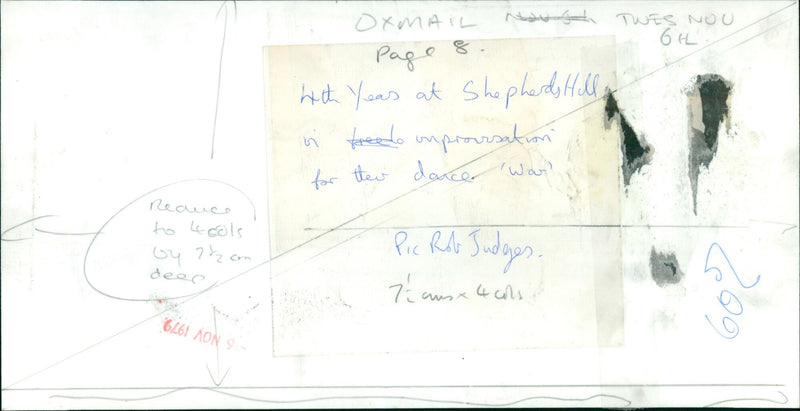 OXMAIL TUES NOV
6th
Page 8.
4th Years at Shepherds Hill
in improvisation
for their dance 'War'
Pic Rob Judges.
7½ cms x 4 cols
Reduce
to 4 cols
by 7½ cm
deep
-6 NOV 1979
605